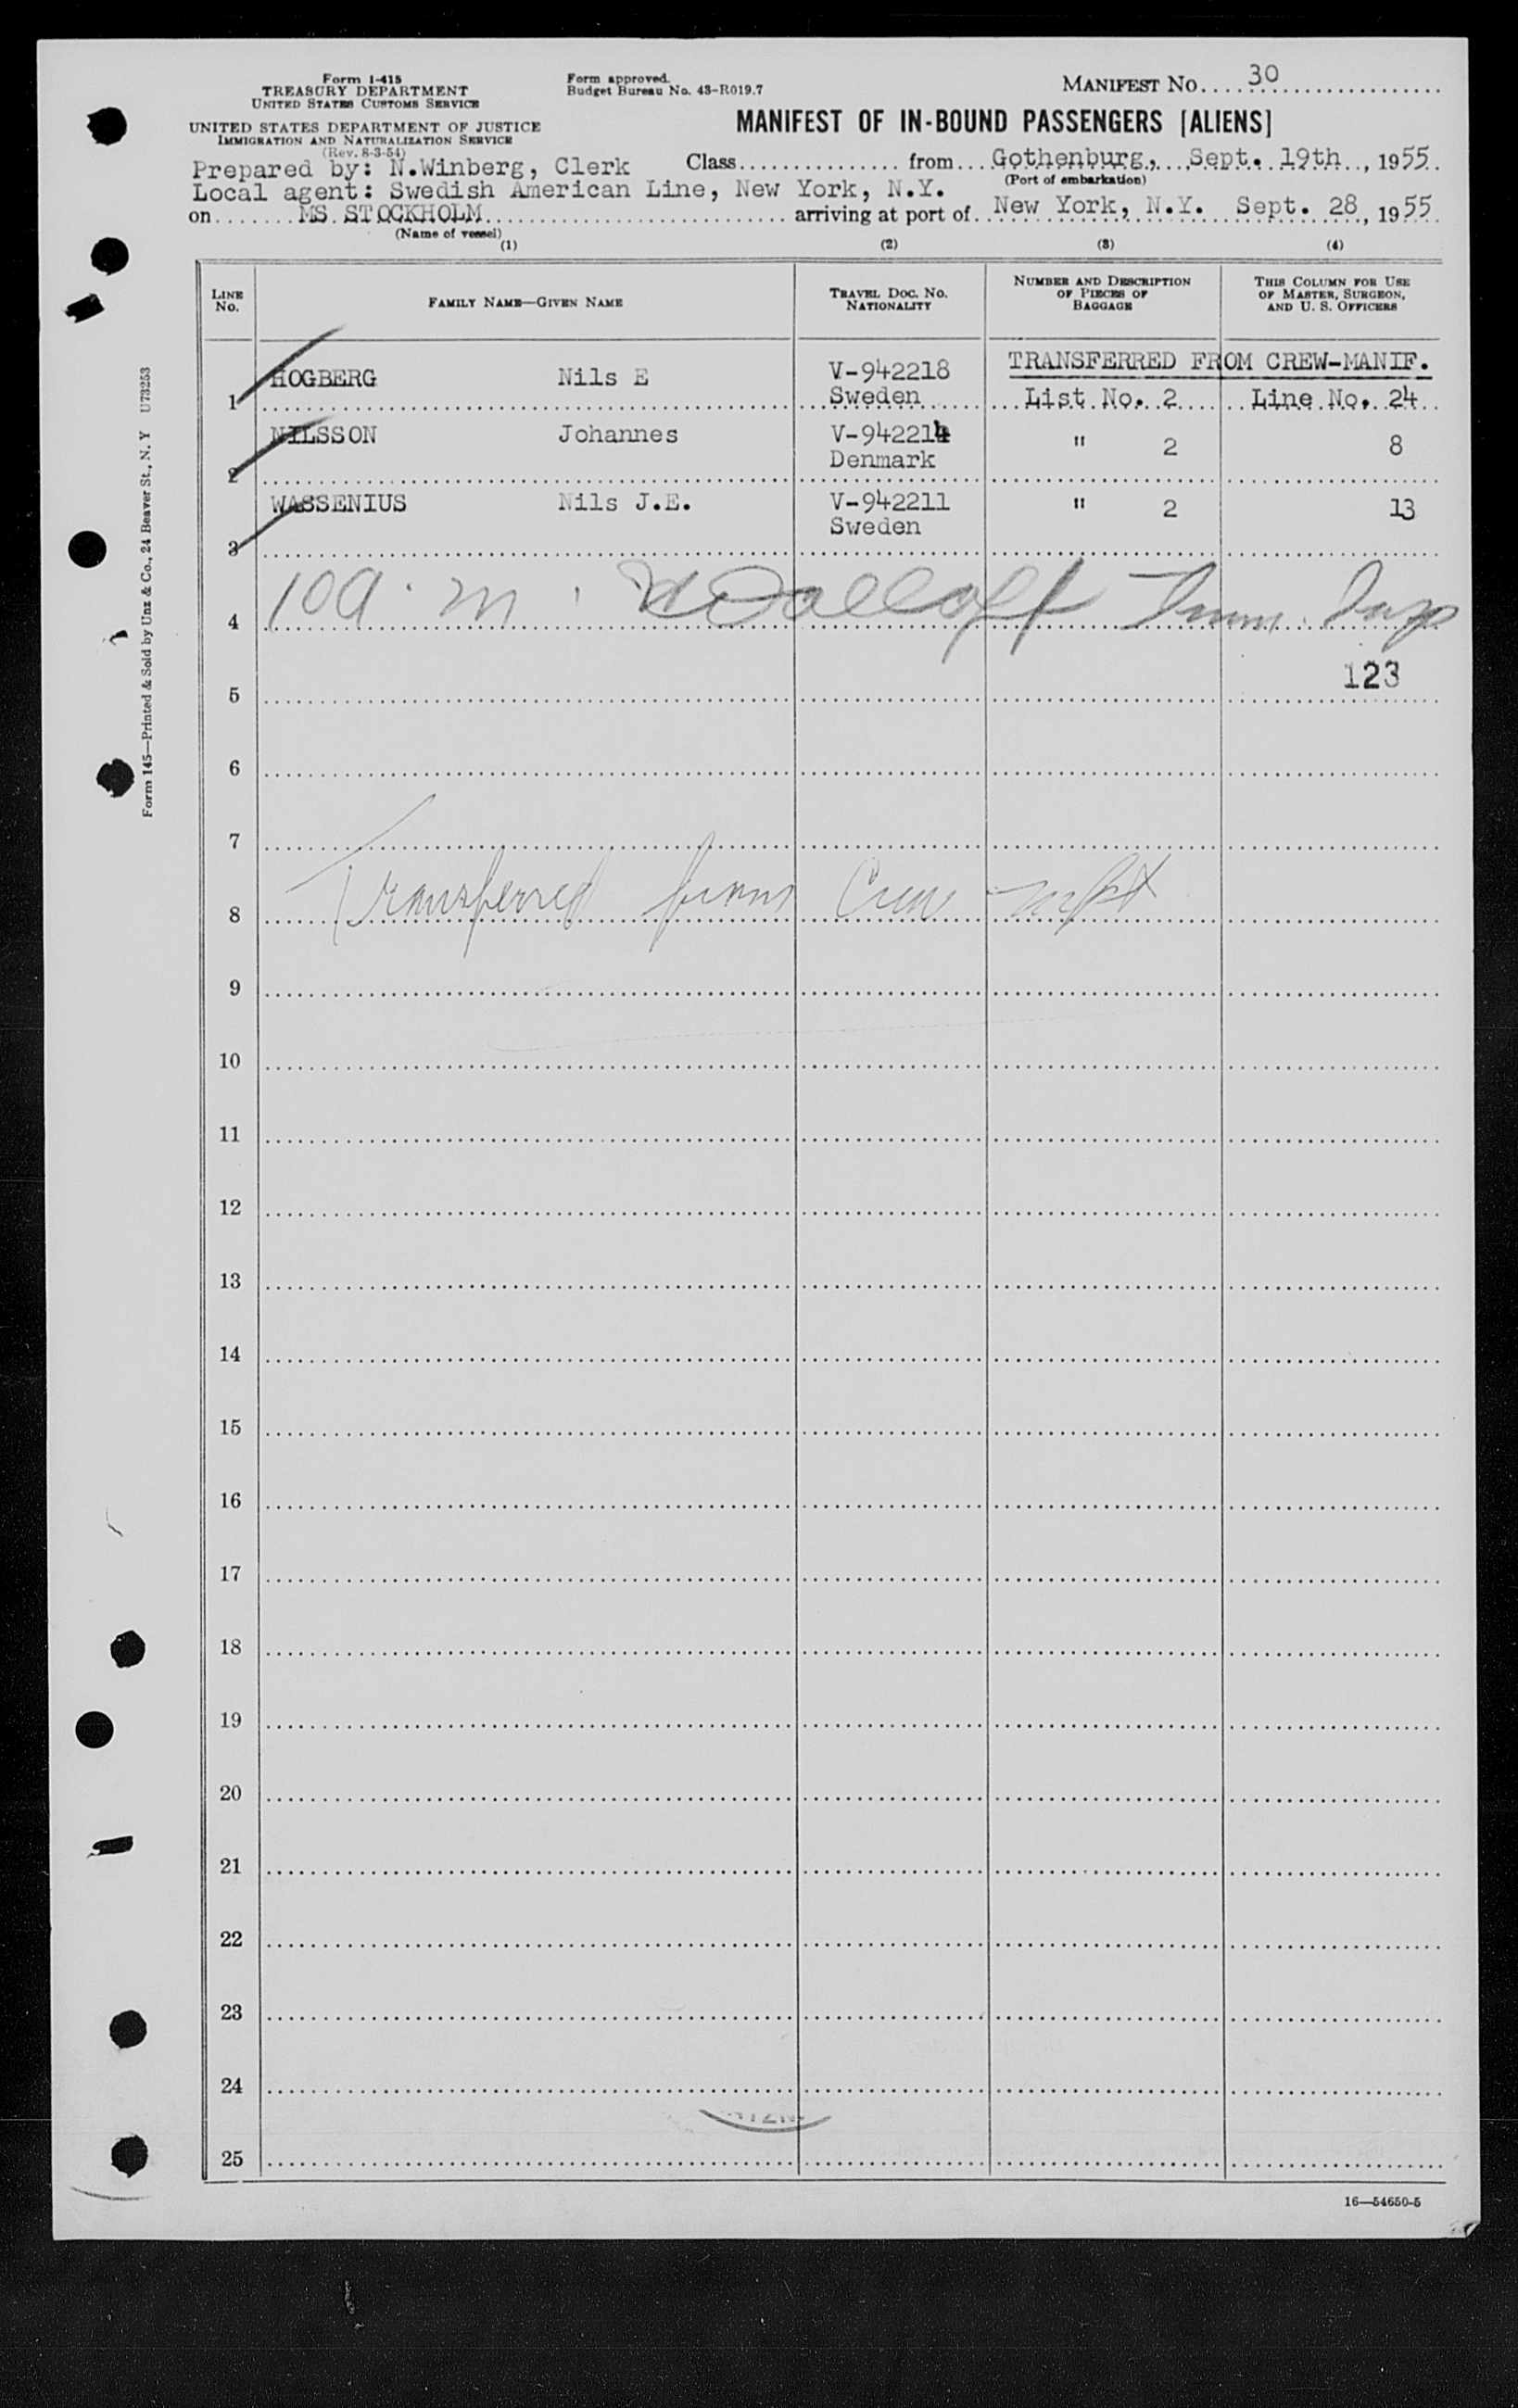 Form I-415
TREASURY DEPARTMENT
UNITED STATES CUSTOMS SERVICE
UNITED STATES DEPARTMENT OF JUSTICE
IMMIGRATION AND NATURALIZATION SERVICE
(Rev. 8-3-54)
Form approved.
Budget Bureau No. 43-R019.7
MANIFEST No. 30
MANIFEST OF IN-BOUND PASSENGERS [ALIENS]
Prepared by: N.Winberg, Clerk
Class from Gothenburg, Sept. 19th, 1955
(Port of embarkation)
Local agent: Swedish American Line, New York, N.Y.
on MS STOCKHOLM arriving at port of New York, N.Y. Sept. 28, 1955
(Name of vessel)
(1) (2) (3) (4)
LINE No. FAMILY NAME—GIVEN NAME TRAVEL DOC. No. NATIONALITY NUMBER AND DESCRIPTION OF PIECES OF BAGGAGE THIS COLUMN FOR USE OF MASTER, SURGEON, AND U. S. OFFICERS
TRANSFERRED FROM CREW-MANIF.
1 HOGBERG Nils E V-942218 Sweden List No. 2 Line No. 24
2 NILSSON Johannes V-942214 Denmark " 2 8
3 WASSENIUS Nils J.E. V-942211 Sweden " 2 13
4 10 a.m. Imm. Insp
123
5
6
7
8 Transferred from Crew mfst
9
10
11
12
13
14
15
16
17
18
19
20
21
22
23
24
25
16—54650-5
Form 145—Printed & Sold by Unz & Co., 24 Beaver St., N.Y U73253